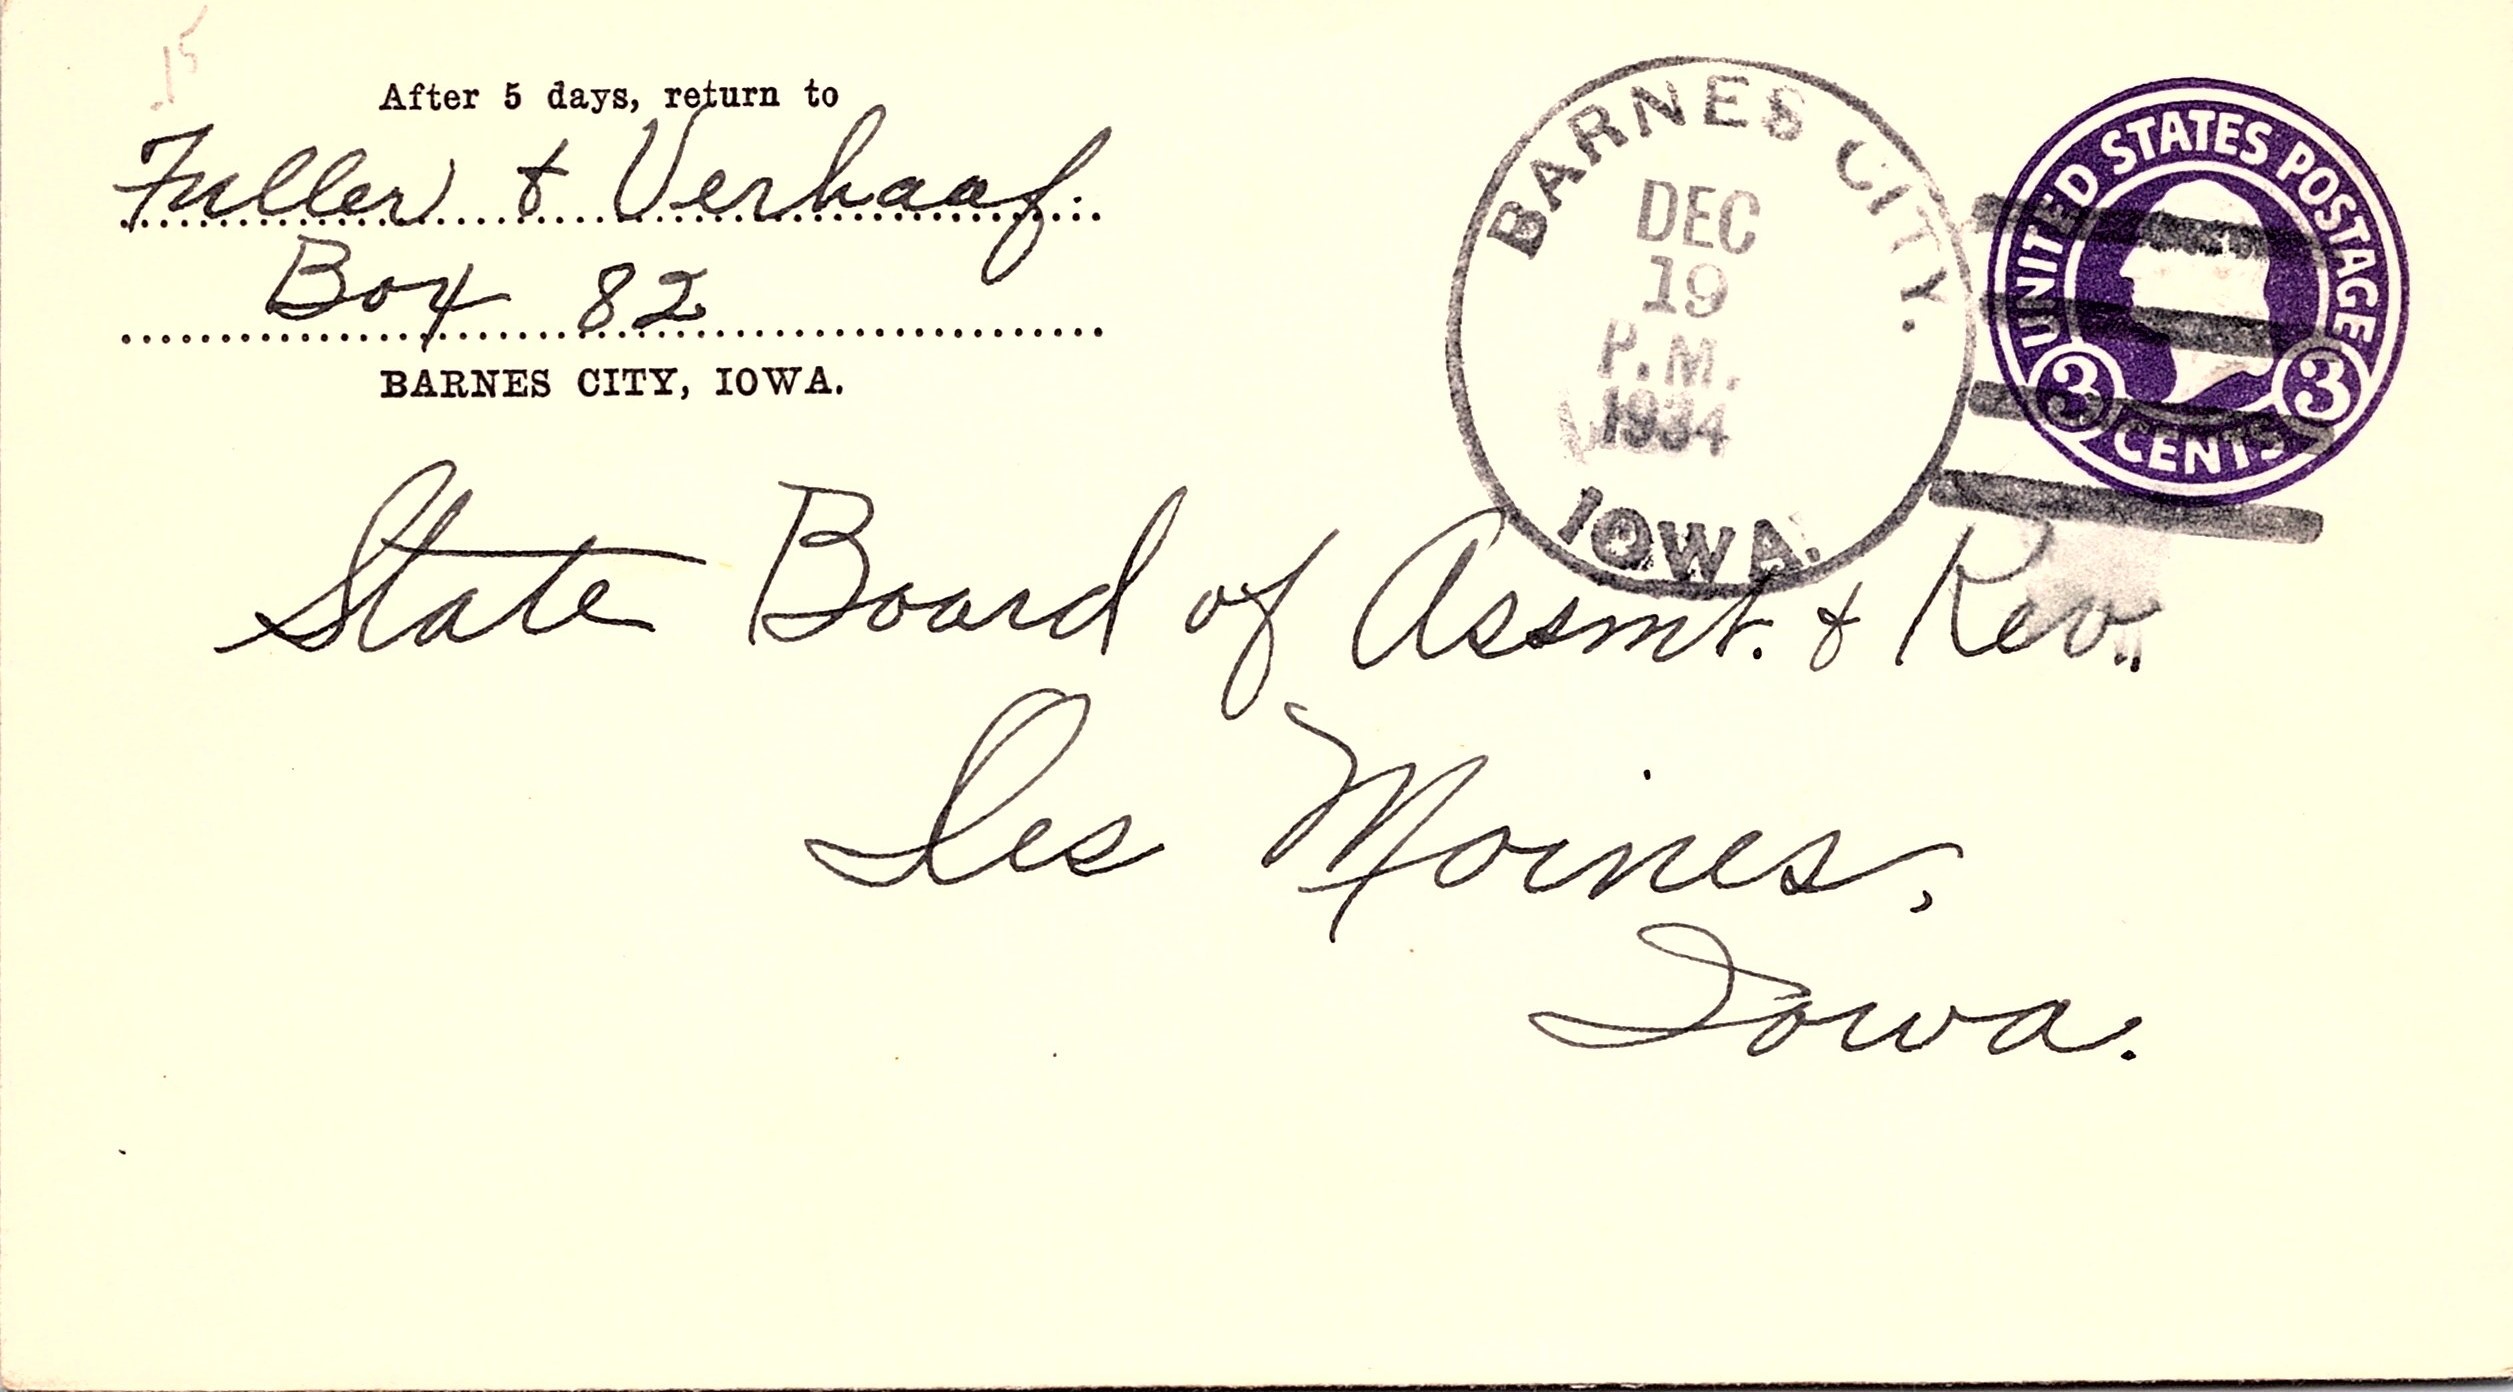 15
After 5 days, return to
Fuller & Verhaaf.
Box 82
BARNES CITY, IOWA.
BARNES CITY.
DEC
19
P.M.
1934
IOWA.
UNITED STATES POSTAGE
3 CENTS 3
State Board of Assmt. & Rev.
Des Moines,
Iowa.